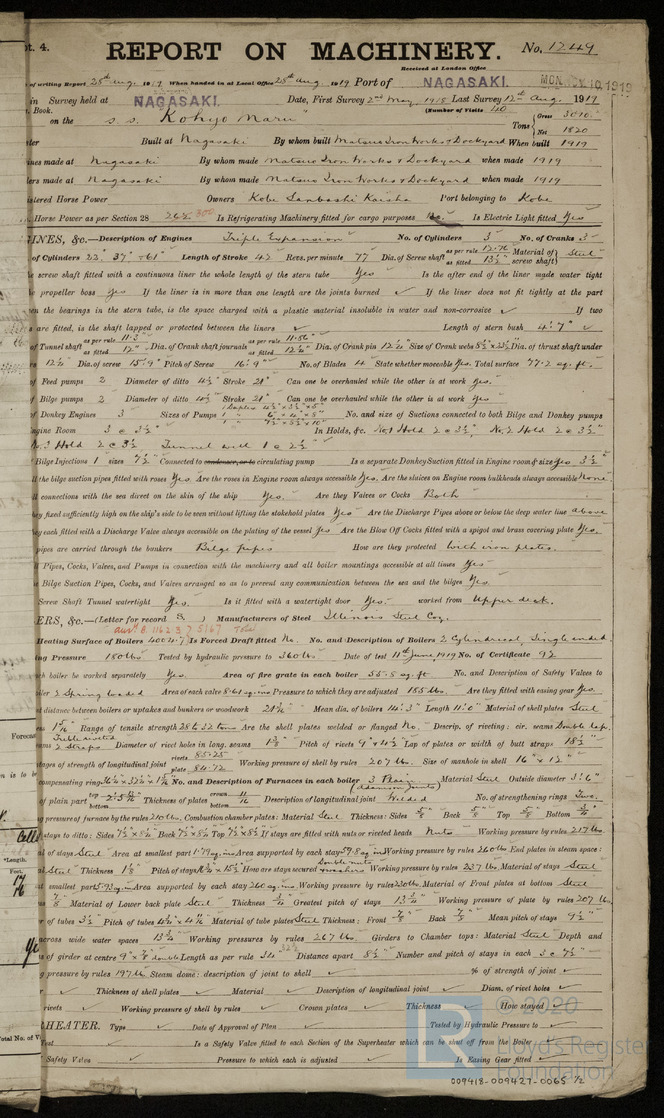 pt. 4.
REPORT ON MACHINERY. No. 1249
Received at London Office
of writing Report 28th Aug. 1919 When handed in at Local Office 28th Aug 1919 Port of NAGASAKI. MON. 10. 1919
in Survey held at NAGASAKI. Date, First Survey 2nd May, 1918 Last Survey 12th Aug. 1919
Book. (Number of Visits 40)
on the s.s. "Kohyo Maru" Tons { Gross 3010 Net 1820
Built at Nagasaki By whom built Matsuo Iron Works & Dockyard When built 1919
ines made at Nagasaki By whom made Matsuo Iron Works & Dockyard when made 1919
lers made at Nagasaki By whom made Matsuo Iron Works & Dockyard when made 1919
istered Horse Power Owners Kobe Sanbashi Kaisha Port belonging to Kobe
Horse Power as per Section 28 262 300 Is Refrigerating Machinery fitted for cargo purposes No. Is Electric Light fitted Yes
INES, &c.—Description of Engines Triple Expansion No. of Cylinders 3 No. of Cranks 3
of Cylinders 22" 37" & 61" Length of Stroke 42 Revs. per minute 77 Dia. of Screw shaft as per rule 12.76 as fitted 13½" Material of screw shaft } Steel
he screw shaft fitted with a continuous liner the whole length of the stern tube Yes Is the after end of the liner made water tight
he propeller boss yes If the liner is in more than one length are the joints burned ✓ If the liner does not fit tightly at the part
en the bearings in the stern tube, is the space charged with a plastic material insoluble in water and non-corrosive ✓ If two
s are fitted, is the shaft lapped or protected between the liners ✓ Length of stern bush 4'.7" ✓
of Tunnel shaft as per rule 11.3" as fitted 12" Dia. of Crank shaft journals as per rule 11.86" as fitted 12¼" Dia. of Crank pin 12¼" Size of Crank webs 8½" x 23½" Dia. of thrust shaft under
12¼" Dia. of screw 15'.9" Pitch of Screw 16'.9" No. of Blades 4 State whether moveable Yes. Total surface 77.2 sq. ft.
of Feed pumps 2 Diameter of ditto 4½" Stroke 21" Can one be overhauled while the other is at work yes.
of Bilge pumps 2 Diameter of ditto 4½" Stroke 21" Can one be overhauled while the other is at work Yes.
of Donkey Engines 3 Sizes of Pumps No. and size of Suctions connected to both Bilge and Donkey pumps
ngine Room 3 @ 3½" In Holds, &c. No 1 Hold 2 @ 3½", No. 2 Hold 2 @ 3½"
No. 3 Hold 2 @ 3½" Tunnel well 1 @ 2½"
Bilge Injections 1 sizes 7½" Connected to condenser, or to circulating pump Is a separate Donkey Suction fitted in Engine room & size Yes 3½"
ll the bilge suction pipes fitted with roses Yes. Are the roses in Engine room always accessible Yes. Are the sluices on Engine room bulkheads always accessible None
l connections with the sea direct on the skin of the ship Yes. Are they Valves or Cocks Both
ey fixed sufficiently high on the ship's side to be seen without lifting the stokehold plates Yes Are the Discharge Pipes above or below the deep water line above
ey each fitted with a Discharge Valve always accessible on the plating of the vessel Yes Are the Blow Off Cocks fitted with a spigot and brass covering plate Yes.
pipes are carried through the bunkers Bilge pipes How are they protected With iron plates.
l Pipes, Cocks, Valves, and Pumps in connection with the machinery and all boiler mountings accessible at all times Yes
e Bilge Suction Pipes, Cocks, and Valves arranged so as to prevent any communication between the sea and the bilges Yes.
Screw Shaft Tunnel watertight Yes. Is it fitted with a watertight door Yes. worked from Upper deck.
ERS, &c.—(Letter for record S ) Manufacturers of Steel Illinois Steel Coy.
Heating Surface of Boilers 4004.7 Is Forced Draft fitted No. No. and Description of Boilers 2 Cylindrical, Single ended
ing Pressure 180 lbs Tested by hydraulic pressure to 360 lbs Date of test 11th June, 1919 No. of Certificate 92
ch boiler be worked separately Yes. Area of fire grate in each boiler 55.8 sq. ft No. and Description of Safety Valves to
iler 2 Spring loaded Area of each valve 8.61 sq. ins Pressure to which they are adjusted 185 lbs. Are they fitted with easing gear Yes.
st distance between boilers or uptakes and bunkers or woodwork Mean dia. of boilers 14'.3" Length 11'.0" Material of shell plates Steel
Range of tensile strength 28 to 32 tons Are the shell plates welded or flanged No. Descrip. of riveting: cir. seams Double lap.
eams Treble riveted 2 Straps Diameter of rivet holes in long. seams 1⅜" Pitch of rivets 9" x 4½" Lap of plates or width of butt straps 18½"
tages of strength of longitudinal joint rivets 85.25 plate 84.72 Working pressure of shell by rules 207 lbs. Size of manhole in shell 16" x 12"
compensating ring No. and Description of Furnaces in each boiler 3 Plain (Adamson joints) Material Steel Outside diameter 3'.6"
of plain part top bottom Thickness of plates crown bottom 11/16 Description of longitudinal joint Welded No. of strengthening rings Two.
pressure of furnace by the rules 210 lbs. Combustion chamber plates: Material Steel Thickness: Sides ⅝" Back ⅝" Top ⅝" Bottom ¾"
stays to ditto: Sides 7½" x 8¼" Back 7½" x 8¼" Top 7½" x 8½" If stays are fitted with nuts or riveted heads Nuts Working pressure by rules 217 lbs
l of stays Steel Area at smallest part 1.79 sq. ins Area supported by each stay 57.8 sq. ins Working pressure by rules 260 lbs End plates in steam space:
al Steel Thickness 1⅛" Pitch of stays How are stays secured Double nuts & washers Working pressure by rules 237 lbs. Material of stays Steel
t smallest part 5.93 sq. ins Area supported by each stay 260 sq. ins Working pressure by rules 230 lbs. Material of Front plates at bottom Steel
⅞" Material of Lower back plate Steel Thickness ¾" Greatest pitch of stays 13¾" Working pressure of plate by rules 207 lbs.
er of tubes 3½" Pitch of tubes Material of tube plates Steel Thickness: Front ⅞" Back ⅞" Mean pitch of stays 9½"
across wide water spaces 13¾" Working pressures by rules 267 lbs. Girders to Chamber tops: Material Steel Depth and
ss of girder at centre 9" x ⅞" double Length as per rule Distance apart 8½" Number and pitch of stays in each 3 @ 7½"
g pressure by rules 197 lbs Steam dome: description of joint to shell ✓ % of strength of joint ✓
✓ Thickness of shell plates ✓ Material ✓ Description of longitudinal joint ✓ Diam. of rivet holes ✓
rivets ✓ Working pressure of shell by rules ✓ Crown plates ✓ Thickness ✓ How stayed ✓
HEATER. Type ✓ Date of Approval of Plan ✓ Tested by Hydraulic Pressure to ✓
Test ✓ Is a Safety Valve fitted to each Section of the Superheater which can be shut off from the Boiler ✓
Safety Valve ✓ Pressure to which each is adjusted ✓ Is Easing Gear fitted ✓
© 2020
Lloyd's Register
Foundation
009418-009427-0065 ½